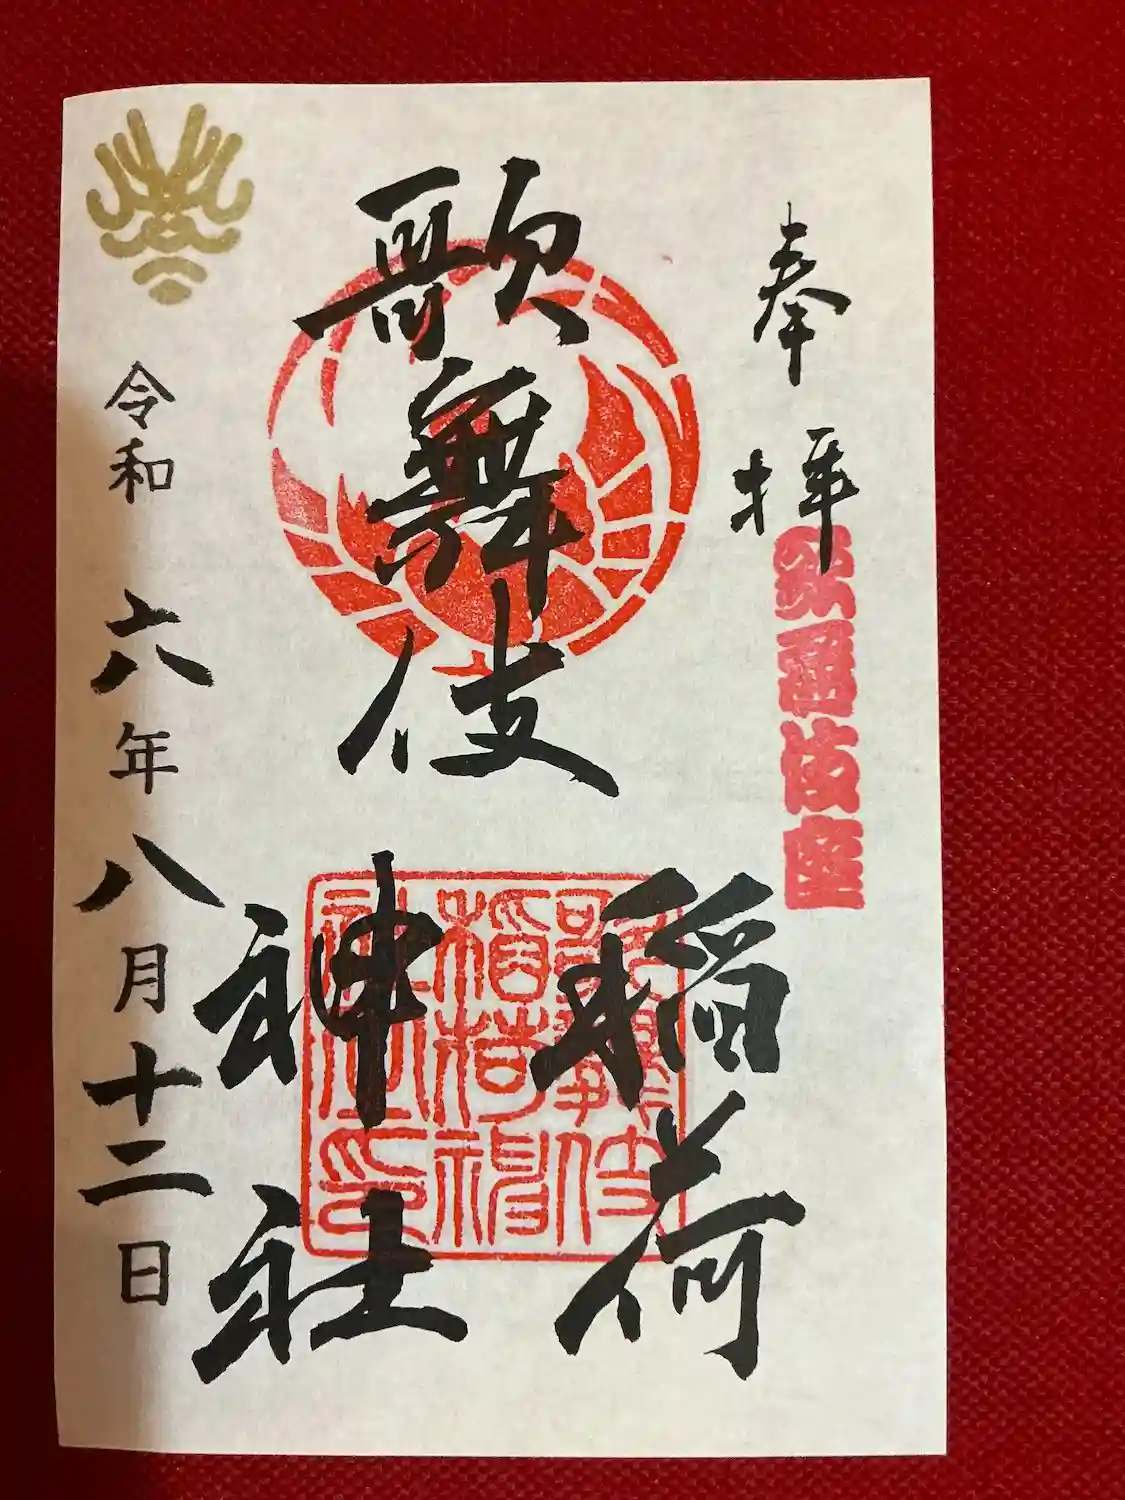 奉拝
歌舞伎座
歌舞伎
稲荷
神社
歌舞伎
稲荷神
社印
令和六年八月十二日